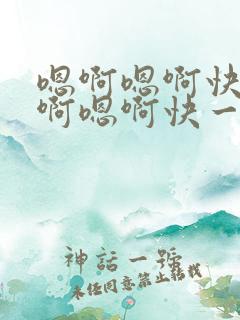 嗯啊嗯啊快
啊嗯啊快一
神話一號
未经同意禁止转载